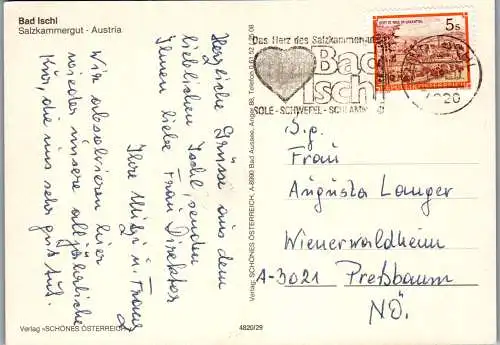 Bad Ischl
Salzkammergut - Austria
Herzliche Grüsse aus dem
lieblichen Ischl, senden
Ihnen liebe Frau Direktor
Ihre Mitzi u. Franz
Wir absolvieren hier
wieder unsere alljährliche
Kur, die uns sehr gut tut.
Verlag »SCHÖNES ÖSTERREICH«
4820/29
Verlag »SCHÖNES ÖSTERREICH, A-8990 Bad Aussee, Telefon
Das Herz des Salzkammergutes
Bad
Ischl
SOLE - SCHWEFEL - SCHLAMM
4820
5s
S.g.
Frau
Augusta Langer
Wienerwaldheim
A-3021 Preßbaum
NÖ.